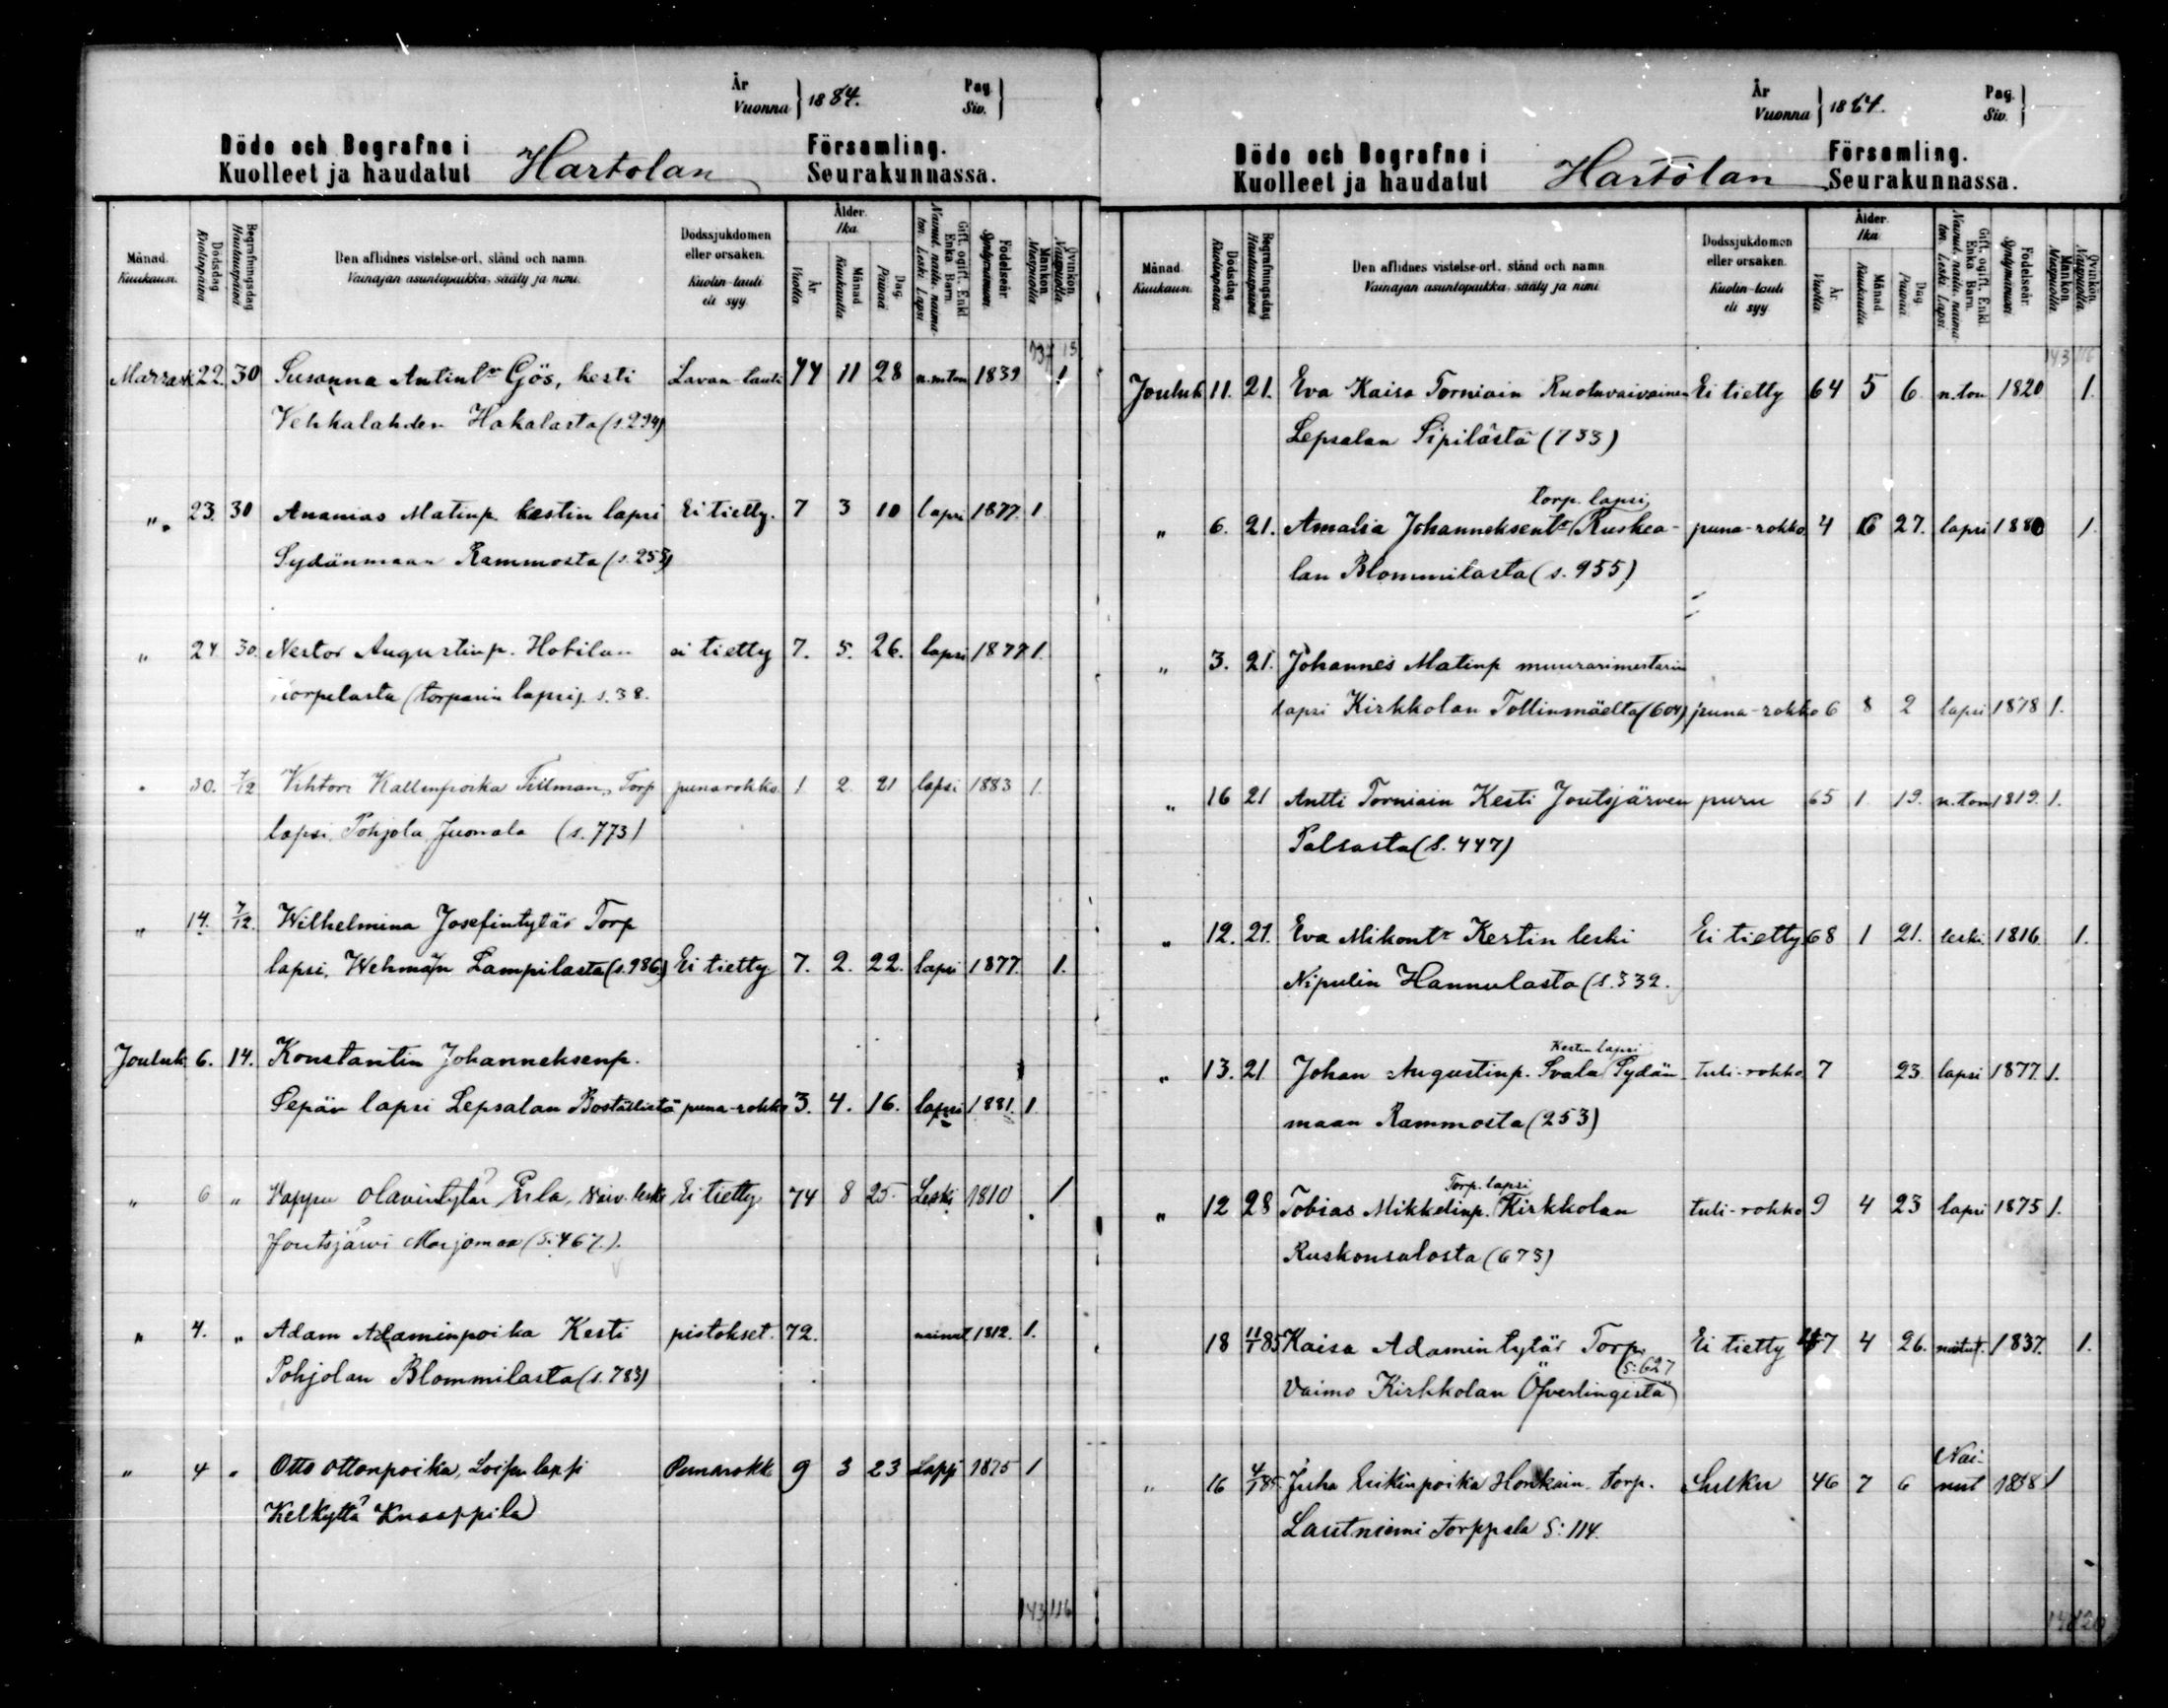 År
Vuonna } 1884.
Pag.
Siv. }
Döde och Begrafne i
Kuolleet ja haudatut Hartolan
Församling.
Seurakunnassa.
Månad. Kuukausi.
Dödsdag. Kuolinpäivä
Begrafningsdag. Hautauspäivä
Den aflidnes vistelse-ort, stånd och namn.
Vainajan asuntopaikka, sääty ja nimi.
Dödssjukdomen eller orsaken.
Kuolin-tauti eli syy.
Ålder. Ikä.
År. Vuotta
Månad. Kuukautta
Dag. Päivää
Gift, ogift. Enkl. Enka Barn.
Nainut, naima-ton. Leski. Lapsi
Födelseår. Syntymävuosi.
Mankön. Miespuolia
Qvinkön. Naispuolia.
137 13
Marrask 22. 30 Susanna Antint:r Gös, kesti Lavan-tauti 44 11 28 n.mton 1839 1
Vehkalahden Hakalasta (s.294)
„ 23. 30 Ananias Matinp. kestin lapsi Ei tietty. 7 3 10 lapsi 1877. 1
Sydänmaan Rammosta (s.253)
„ 24 30. Nestor Augustinp. Hotilan ei tietty 7. 5. 26. lapsi 1877 1.
Torpelasta (torparin lapsi). s.38.
„ 30. 7/12 Vihtori Kallenpoika Tillman, Torp punarokko 1 2 21 lapsi 1883 1.
lapsi. Pohjola Juonala (s.773)
„ 14. 7/12. Wilhelmina Josefintytär Torp
lapsi. Wehmään Lampilasta (s.986) Ei tietty 7. 2. 22. lapsi 1877. 1.
Jouluk 6. 14. Konstantin Johanneksenp.
Sepän lapsi Lepsalan Boställistä puna-rokko 3. 4. 16. lapsi 1881. 1
„ 6 „ Vappu Olavintytär Erla, Vaiv. leski Ei tietty 74 8 25. Leski 1810 1
Joutsjärvi Marjomaa (S:467.).
„ 4. „ Adam Adaminpoika Kesti pistokset. 72. nainut 1812. 1.
Pohjolan Blommilasta (s.783)
„ 4 „ Otto Ottonpoika, Loisen lapsi Punarokk 9 3 23 Lapsi 1875 1
Kelkyttä? Knaappila
143 116
År
Vuonna } 1884.
Pag.
Siv. }
Döde och Begrafne i
Kuolleet ja haudatut Hartolan
Församling.
Seurakunnassa.
Månad. Kuukausi.
Dödsdag. Kuolinpäivä.
Begrafningsdag. Hautauspäivä.
Den aflidnes vistelse-ort, stånd och namn.
Vainajan asuntopaikka, sääty ja nimi.
Dödssjukdomen eller orsaken.
Kuolin-tauti eli syy.
Ålder. Ikä.
År. Vuotta.
Månad. Kuukautta
Dag. Päivää
Gift, ogift. Enkl. Enka Barn.
Nainut, naima-ton. Leski. Lapsi.
Födelseår. Syntymävuosi.
Mankön. Miespuolia.
Qvinkön. Naispuolia.
143 116
Jouluk 11. 21. Eva Kaisa Torniain Ruotuvaivainen Ei tietty 64 5 6 n.ton 1820 1.
Lepsalan Sipilästä (733)
torp. lapsi,
„ 6. 21. Amalia Johanneksent:r Ruskea- puna-rokko 4 6 27. lapsi 1880 1.
lan Blommilasta (s. 955)
„ 3. 21. Johannes Matinp muurarimestarin
lapsi Kirkkolan Tollinmäeltä (604) puna-rokko 6 8 2 lapsi 1878 1.
„ 16 21 Antti Torniain Kesti Joutsjärven puru 65 1 19. n.ton 1819. 1.
Palsasta (S. 447)
„ 12. 21. Eva Mikont:r Kestin leski Ei tietty 68 1 21. leski. 1816. 1.
Nipulin Hannulasta (S.339.
Kestin lapsi
„ 13. 21 Johan Augustinp. Svala Sydän- tuli-rokko 7 23 lapsi 1877. 1.
maan Rammosta (253)
Torp. lapsi
„ 12 28 Tobias Mikkelinp. Kirkkolan tuli-rokko 9 4 23 lapsi 1875 1.
Ruskonsalosta (673)
18 11/1 85 Kaisa Adamintytär Torp. Ei tietty 47 4 26. naitut. 1837. 1.
S:627
Vaimo Kirkkolan Öfverlingistä)
„ 16 4/1 85. Juha Erikinpoika Honkain. torp. Sulku 46 7 6 Nai-
nut 1838 1
Lautniemi Torppala S: 114.